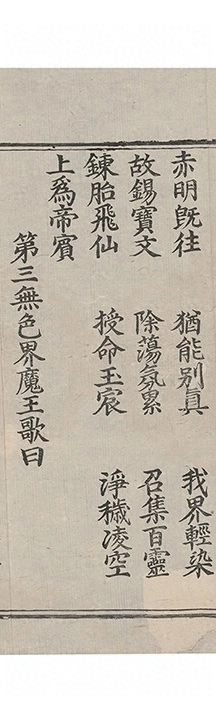 赤明旣往　猶能別眞　我界輕染
故錫寶文　除蕩氛累　召集百靈
鍊胎飛仙　授命玉宸　淨穢凌空
上爲帝賓
第三無色界魔王歌曰